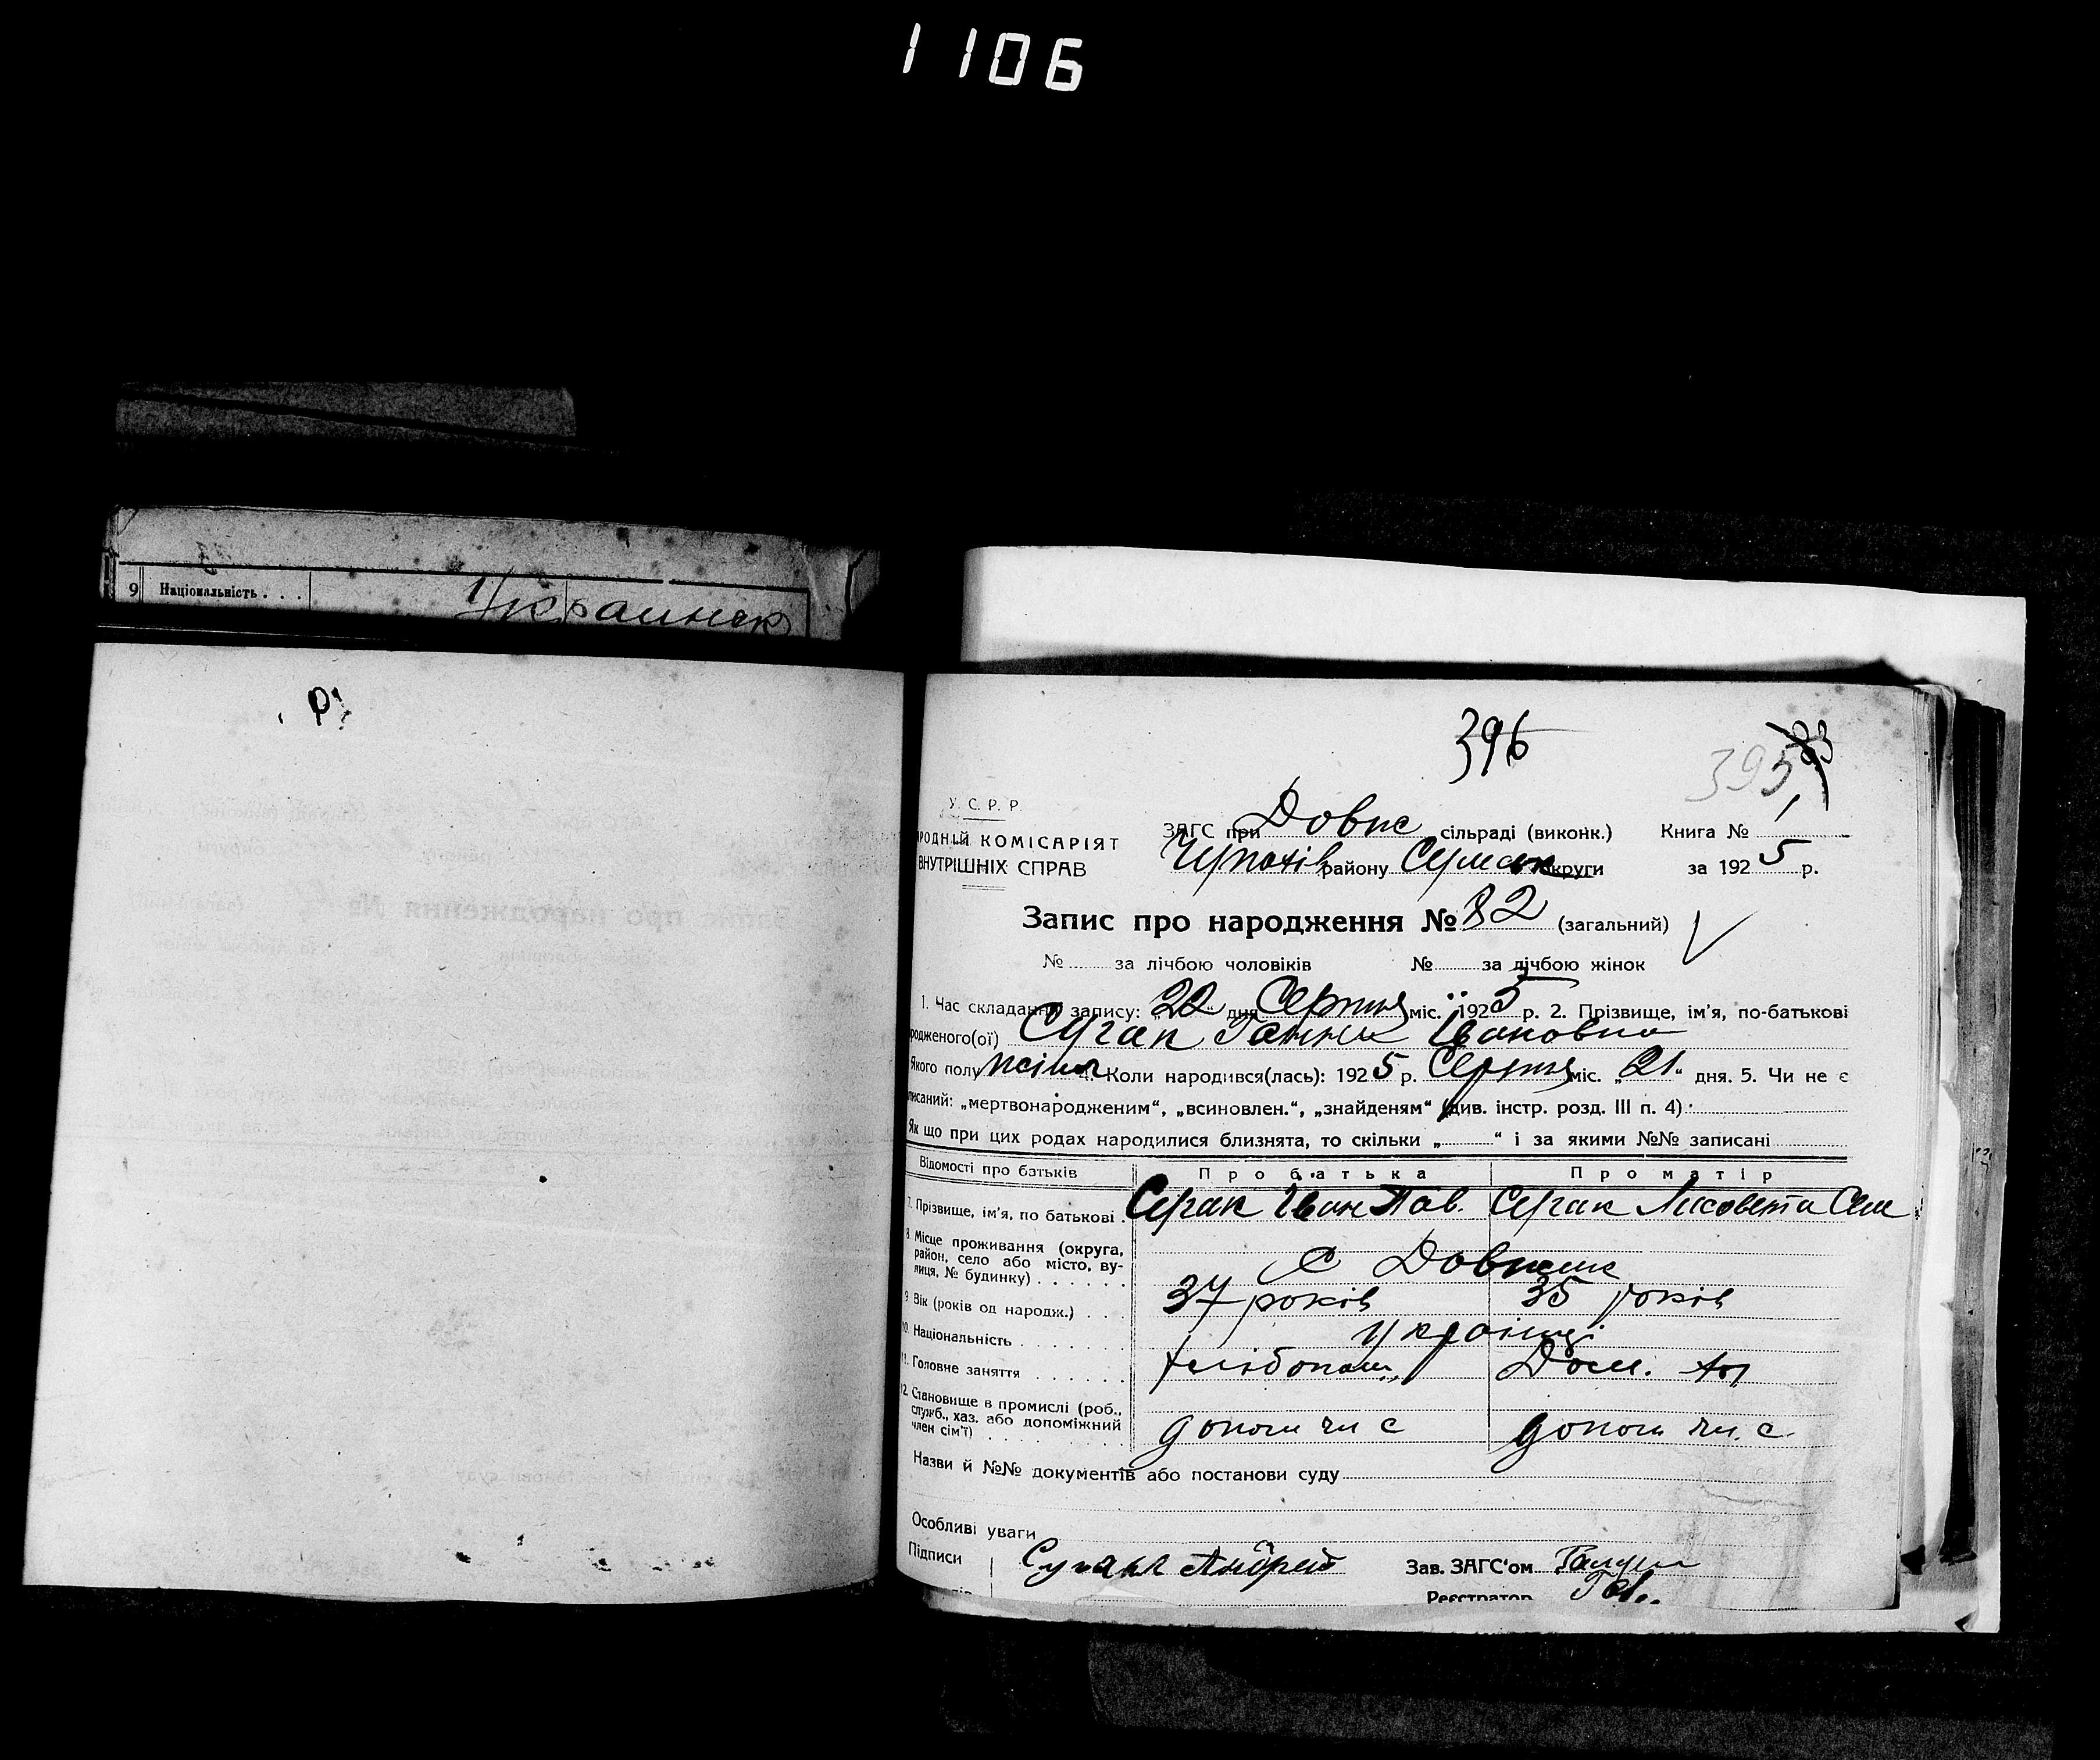 1106
9 Національність . . .
Украинск
396
395
У. С. Р. Р.
РОДНІЙ КОМІСАРІЯТ
ВНУТРІШНІХ СПРАВ
ЗАГС при Довж сільраді (виконк.) Книга № 1
району Сумск округи за 1925 р.
Запис про народження № 82 (загальний)
№ за лічбою чоловіків № за лічбою жінок
1. Час складання запису: „22“ дня Серпня міс. 1925 р. 2. Прізвище, ім'я, по-батькові
родженого(ої) Сугак Ганна Івановна
Якого полу жіноч 4. Коли народився(лась): 1925 р. Серпня міс. „21“ дня. 5. Чи не є
писаний: „мертвонародженим“, „всиновлен.“, „знайденям“ (див. інстр. розд. III п. 4)
Як що при цих родах народилися близнята, то скільки „ “ і за якими №№ записані
Відомості про батьків Про батька Про матір
7. Прізвище, ім'я, по батькові . Сугак Іван Пав. Сугак Лисовета Сем
8. Місце проживання (округа,
район, село або місто, ву-
лиця, № будинку) . . . . . . С Довжик
9. Вік (років од народж.) . . . 37 років 35 років
10. Національність . . . . . . . Українці
11. Головне заняття . . . . . . Хлібопаш. Дом.
12. Становище в промислі (роб.,
служб., хаз. або допоміжний
член сім'ї) . . . . . . . . . . допом чл с допом чл. с.
Назви й №№ документів або постанови суду
Особливі уваги
Підписи Сугак Андрей Зав. ЗАГС'ом
Реєстратор